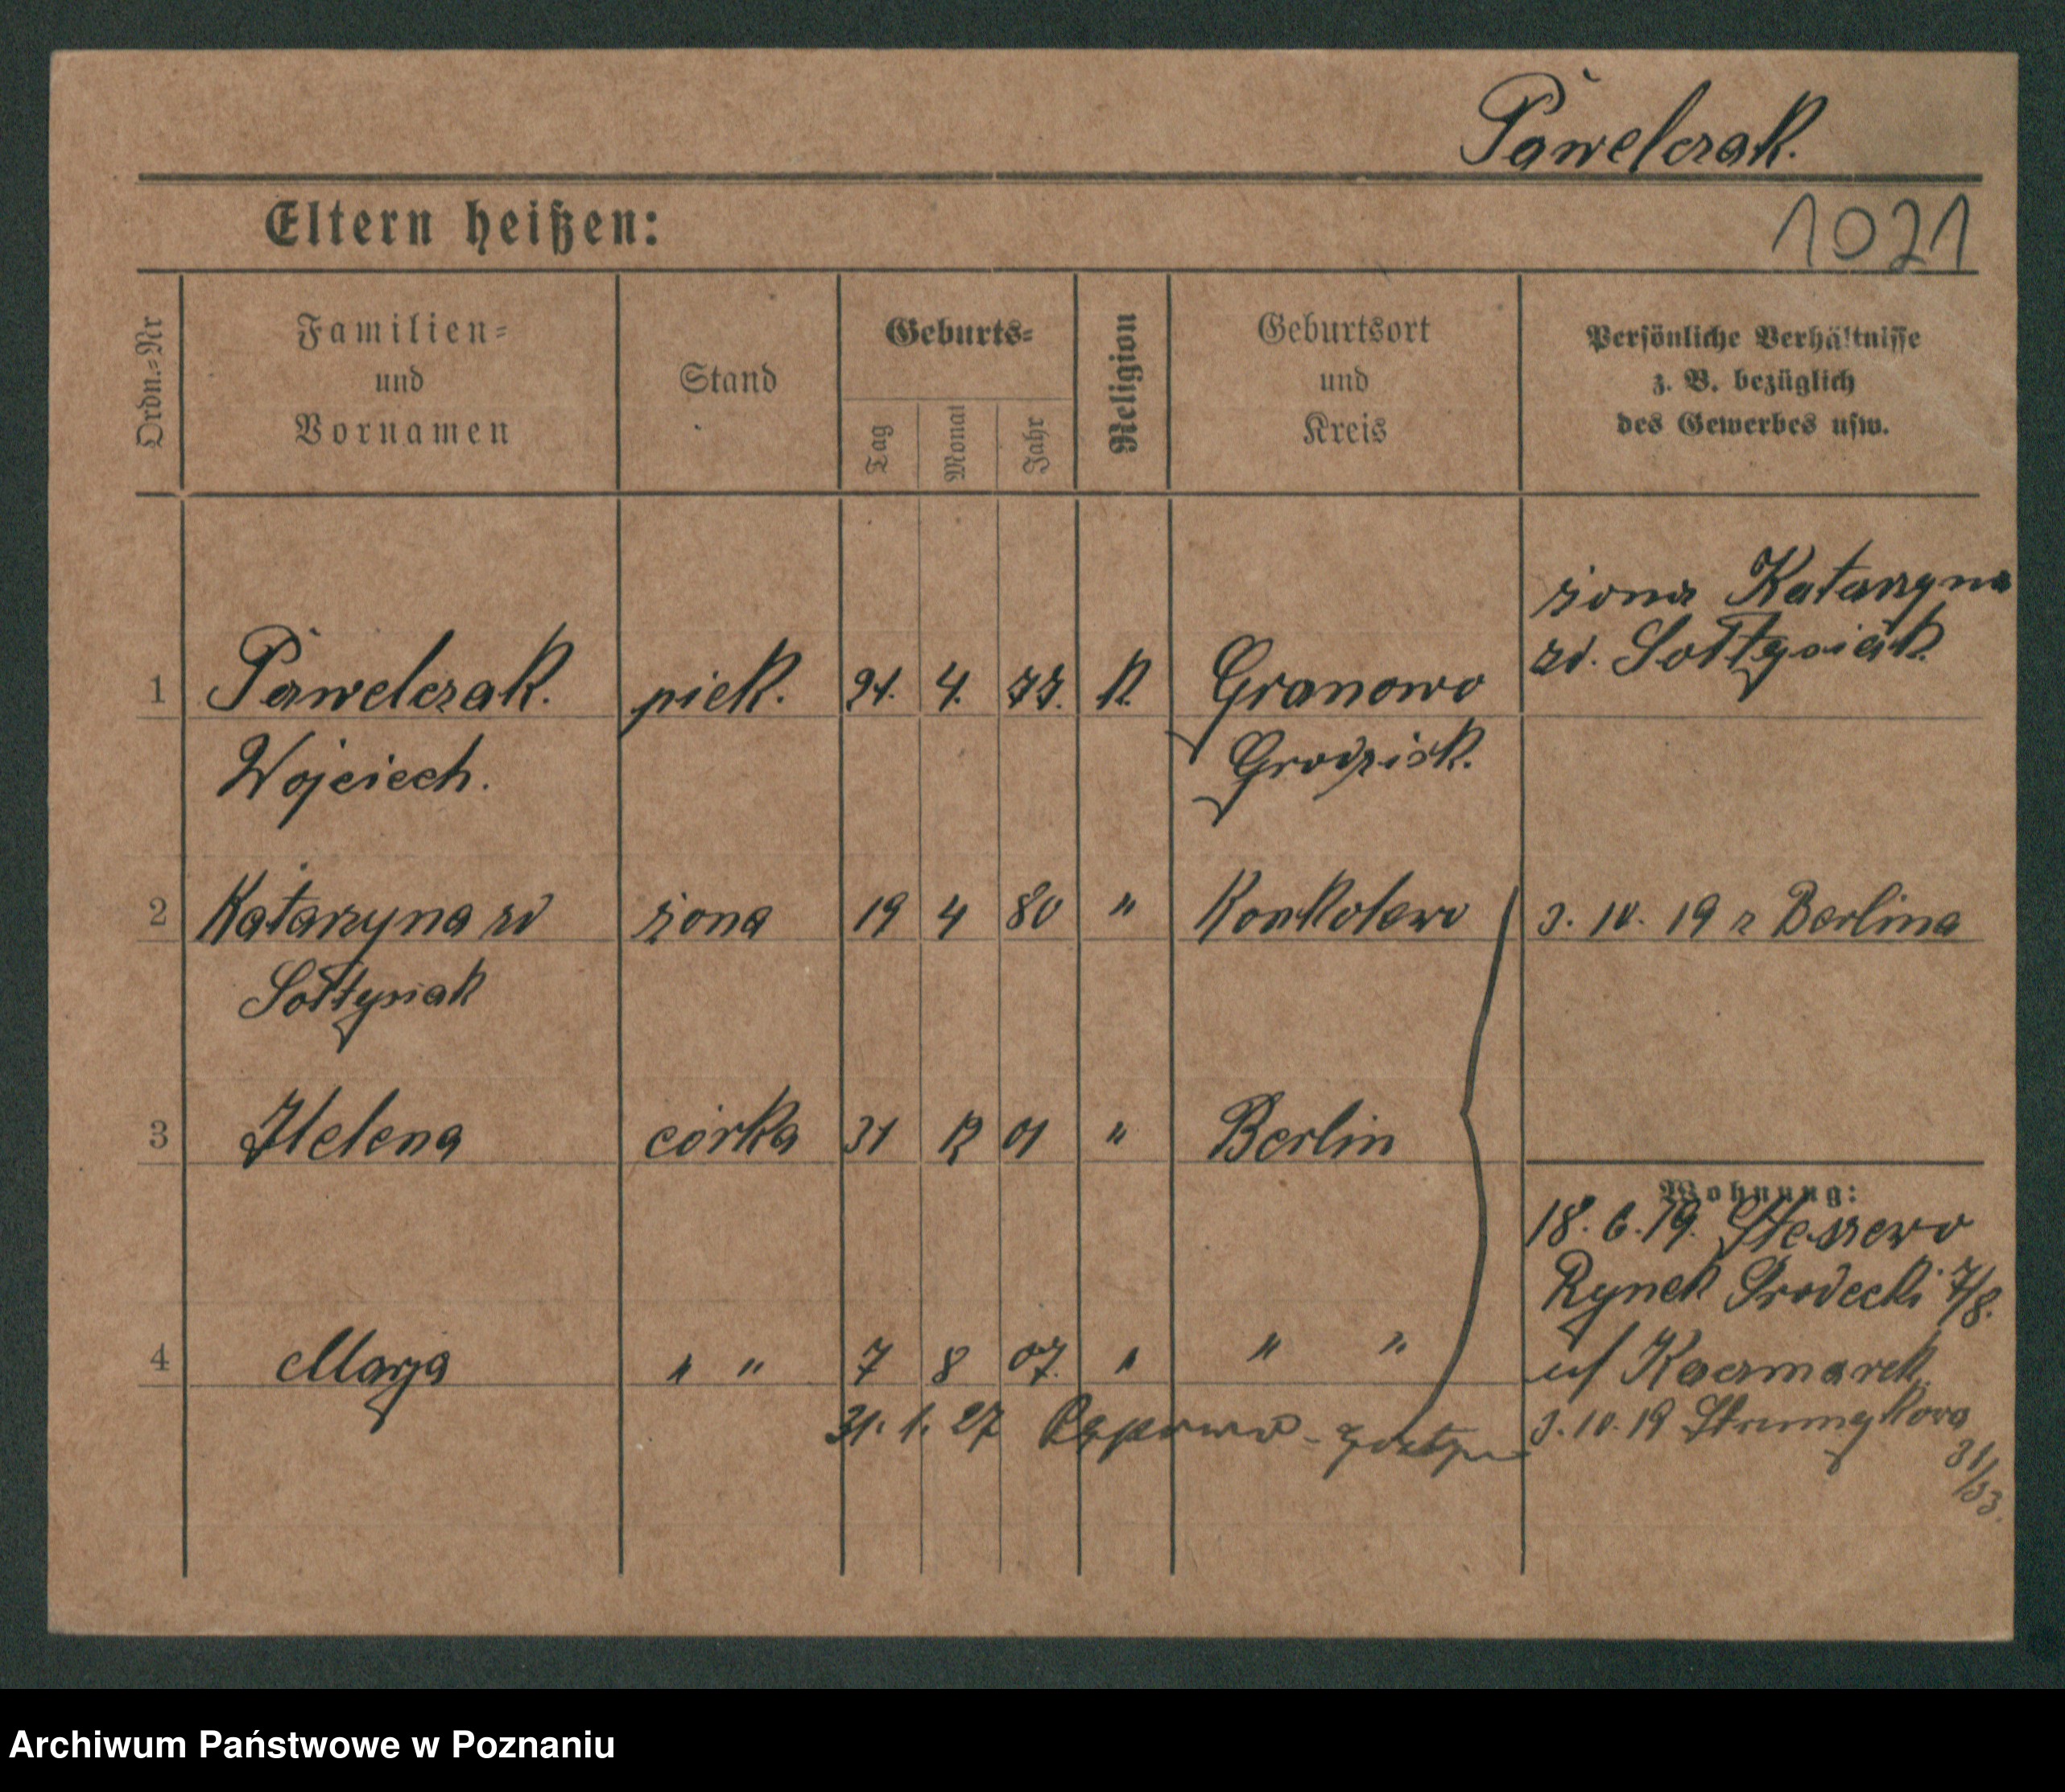 Pawelczak.
Eltern heißen:
1021
Ordn.-Nr
Familien-
und
Vornamen
Stand
Geburts-
Tag
Monat
Jahr
Religion
Geburtsort
und
Kreis
Persönliche Verhältnisse
z. B. bezüglich
des Gewerbes usw.
żona Katarzyna
zd. Sołtysiak
1 Pawelczak. piek. 21. 4. 77. K. Granowo
Wojciech. Grodzisk.
2 Katarzyna zd żona 19 4 80 " Konkolewo 3. 10. 19 z Berlina
Sołtysiak
3 Helena córka 31 12 01 " Berlin
Wohnung:
18. 6. 19. Stęszewo
Rynek Śródecki 7/8.
4 Marja " " 7 8 07. " " " u/ Kaczmarek
31. 1. 27 3. 10. 19 Strumykowa
31/33.
Archiwum Państwowe w Poznaniu